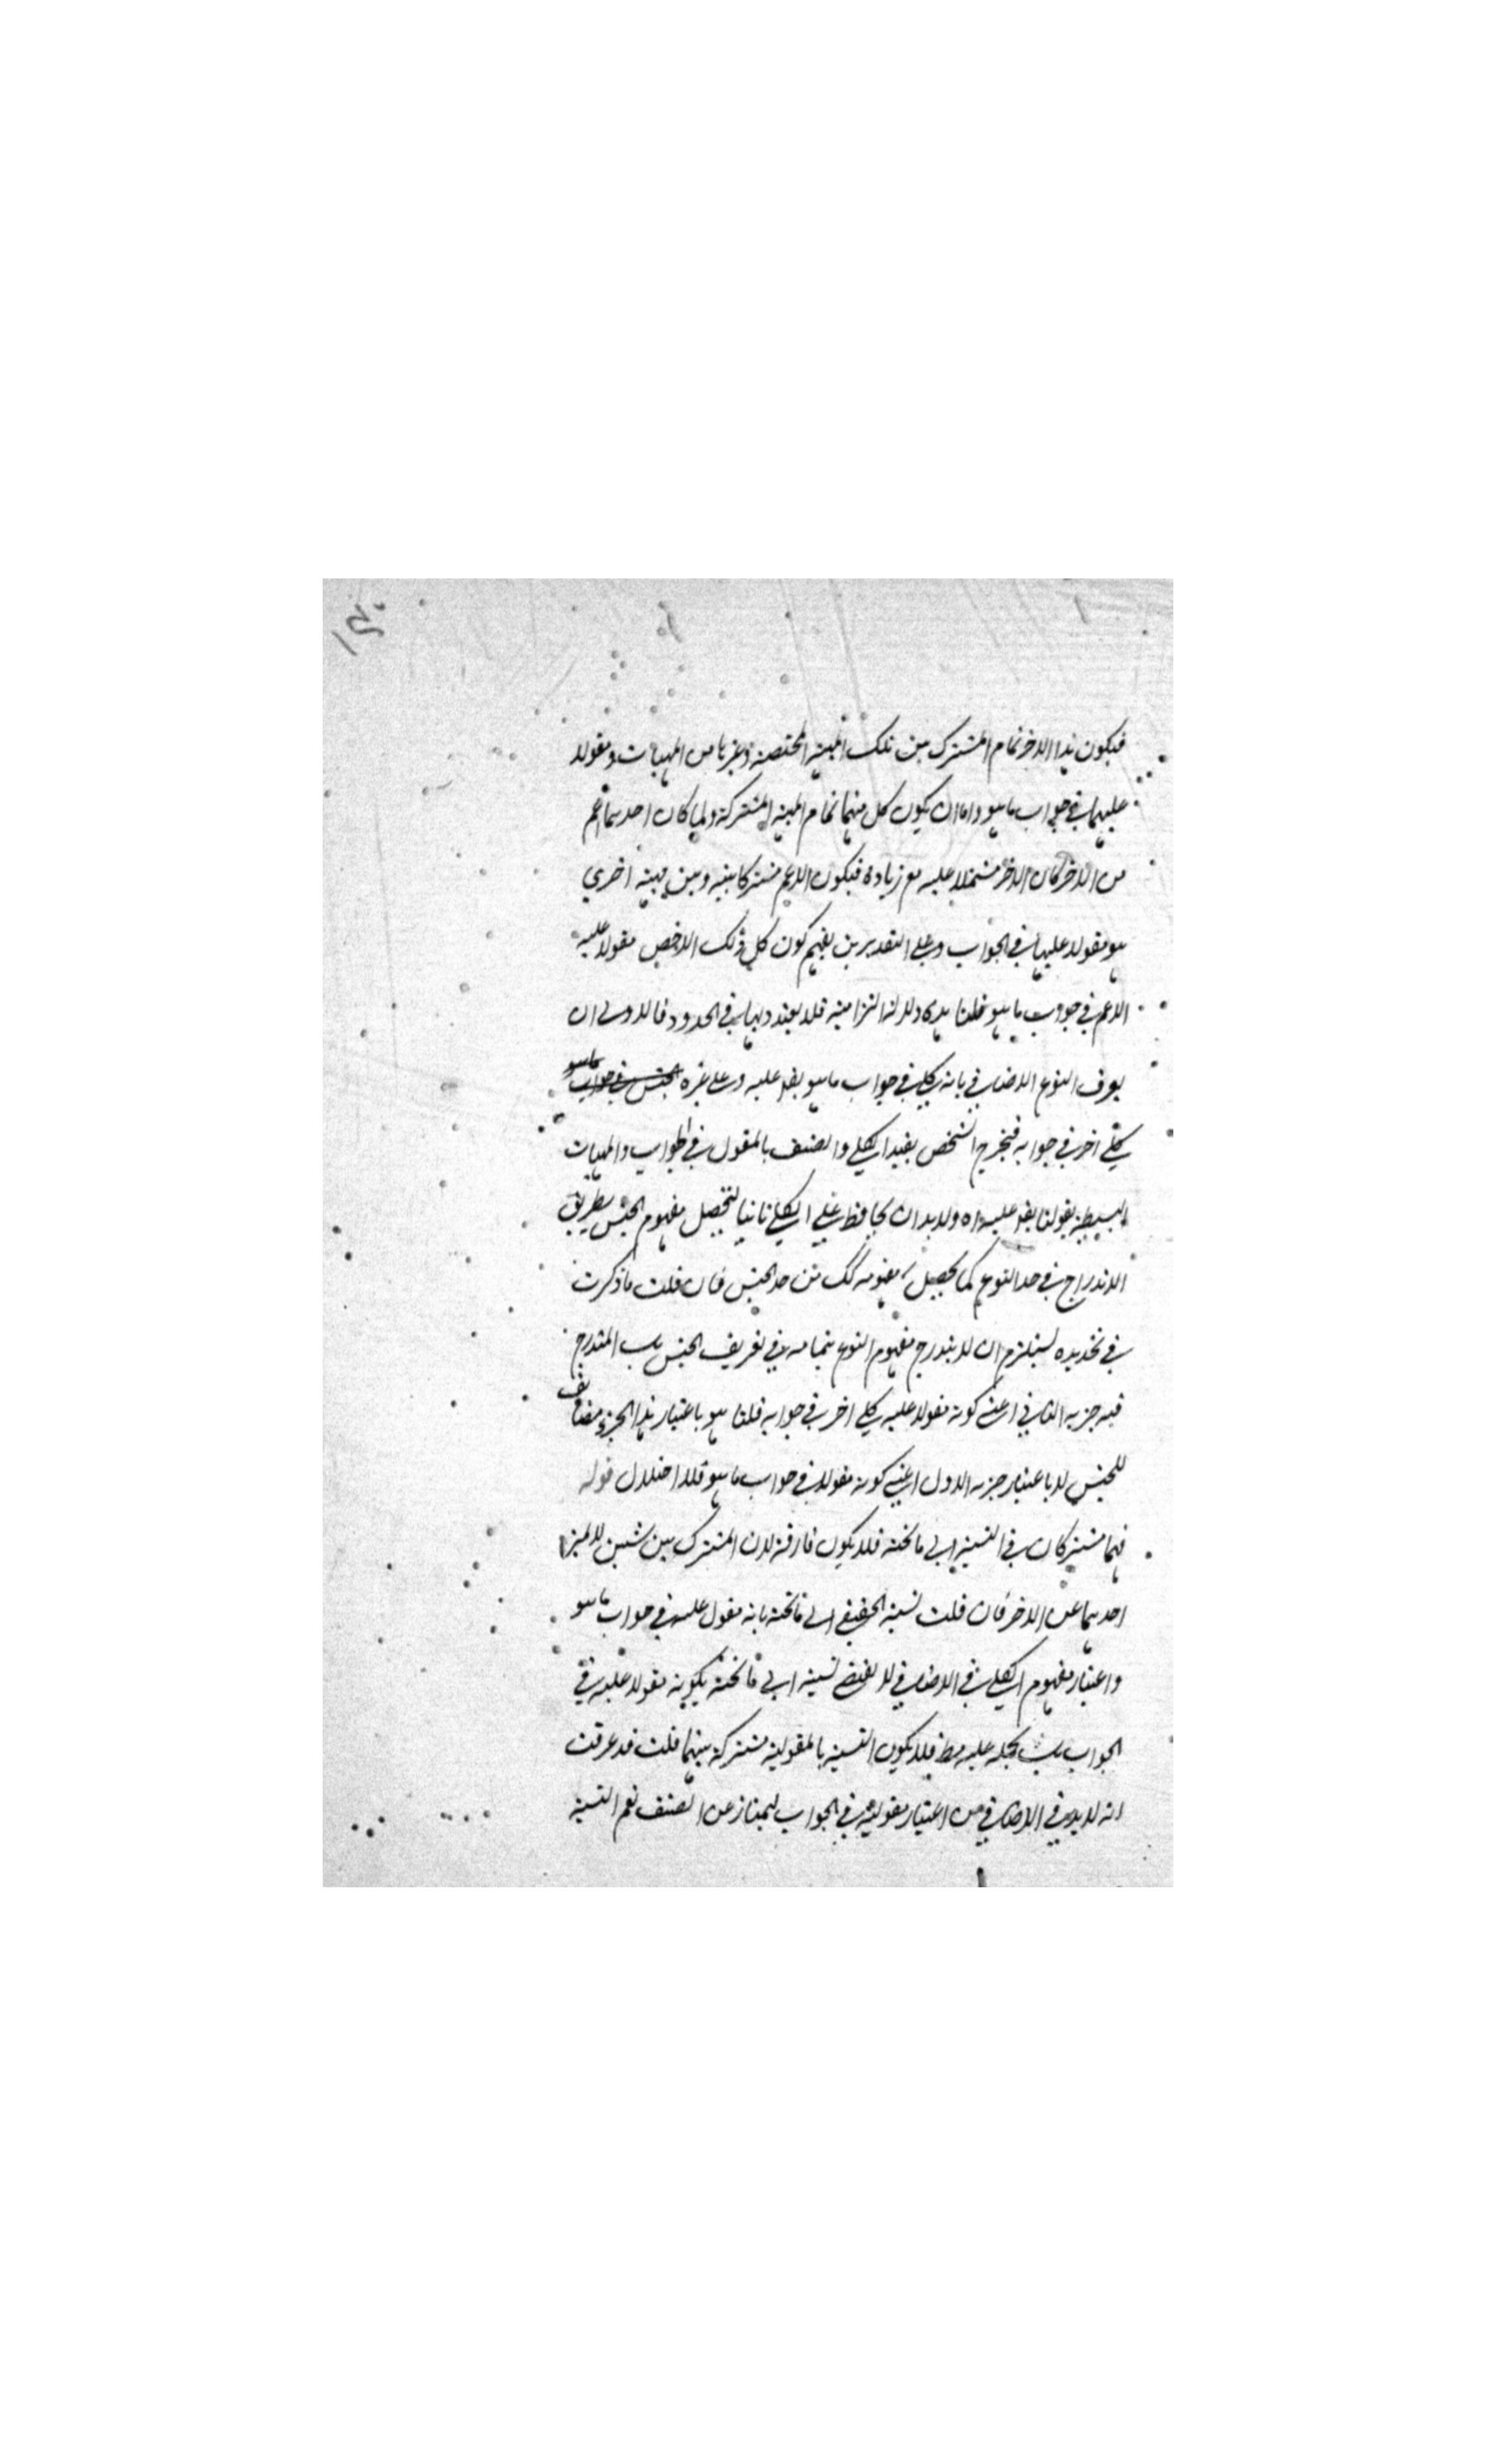 فيكون هذا الاخر تمام المشترك بين تلك المهية المختصة وغيرها من المهيات ومقولا
عليهما في جواب ما هو واما ان يكون كل منهما تمام المهية المشتركة ولما كان احدهما اعم
من الاخر كان الاخر مشتملا عليه مع زيادة فيكون الاعم مشتركا بينه وبين مهية اخرى
هو مقولا عليهما في الجواب وعلى التقديرين يفهم كون كل ذلك الاخص مقولا عليه
الاعم في جواب ما هو قلنا هذه دلالة التزامية فلا يعتد بها في الحدود فالاولى ان
يعرف النوع الاضافي بانه كلي في جواب ما هو يقال عليه وعلى غيره الجنس في جواب ما هو
كلي اخر في جوابه فيخرج الشخص بقيد الكلي والصنف بالمقول في الجواب والمهيات
البسيطة بقولنا يقال عليه اه ولا بد ان يحافظ على الكلي ثانيا لتحصل مفهوم الجنس بطريق
الاندراج في حد النوع كما يحصل مفهومه كك من حد الجنس فان قلت ما ذكرت
في تحديده يستلزم ان لا يندرج مفهوم النوع بتمامه في تعريف الجنس بل المندرج
فيه جزؤه الثاني اعني كونه مقولا عليه كلي اخر في جوابه قلنا هو باعتبار هذا الجزء مضائف
للجنس لا باعتبار جزئه الاول اعني كونه مقولا في جواب ما هو فلا اختلال قوله
فهما مشتركان في النسبة الى ما تحته فلا يكون فارقة لان المشترك بين شيئين لا يميز
احدهما عن الاخر فان قلت نسبة الحقيقي الى ما تحته بانه مقول عليه في جواب ما هو
واعتبار مفهوم الكلي في الاضافي لا يقتضي نسبة الى ما تحته بكونه مقولا عليه في
الجواب بل بحمله عليه مط فلا يكون النسبة بالمقولية مشتركة بينهما قلت قد عرفت
انه لا بد في الاضافي من اعتبار مقوليته في الجواب ليمتاز عن الصنف نعم النسبة